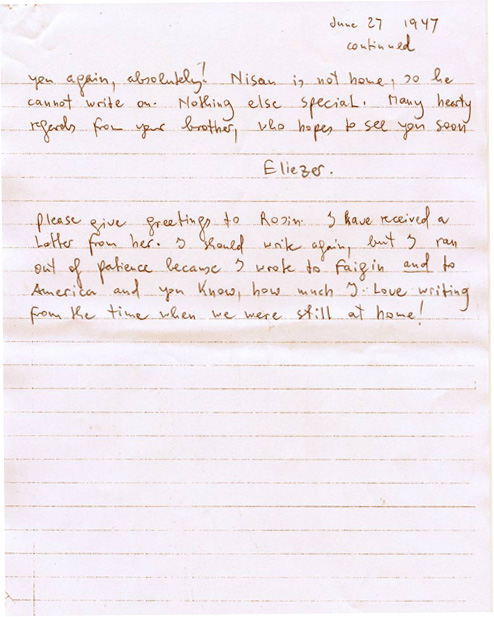 June 27 1947
continued
you again, absolutely! Nisan is not home, so he
cannot write on. Nothing else special. Many hearty
regards from your brother, who hopes to see you soon
Eliezer.
please give greetings to Rosin. I have received a
Latter from her. I should write again, but I ran
out of patience because I wrote to Faigin and to
America and you know, how much I love writing
from the time when we were still at home!